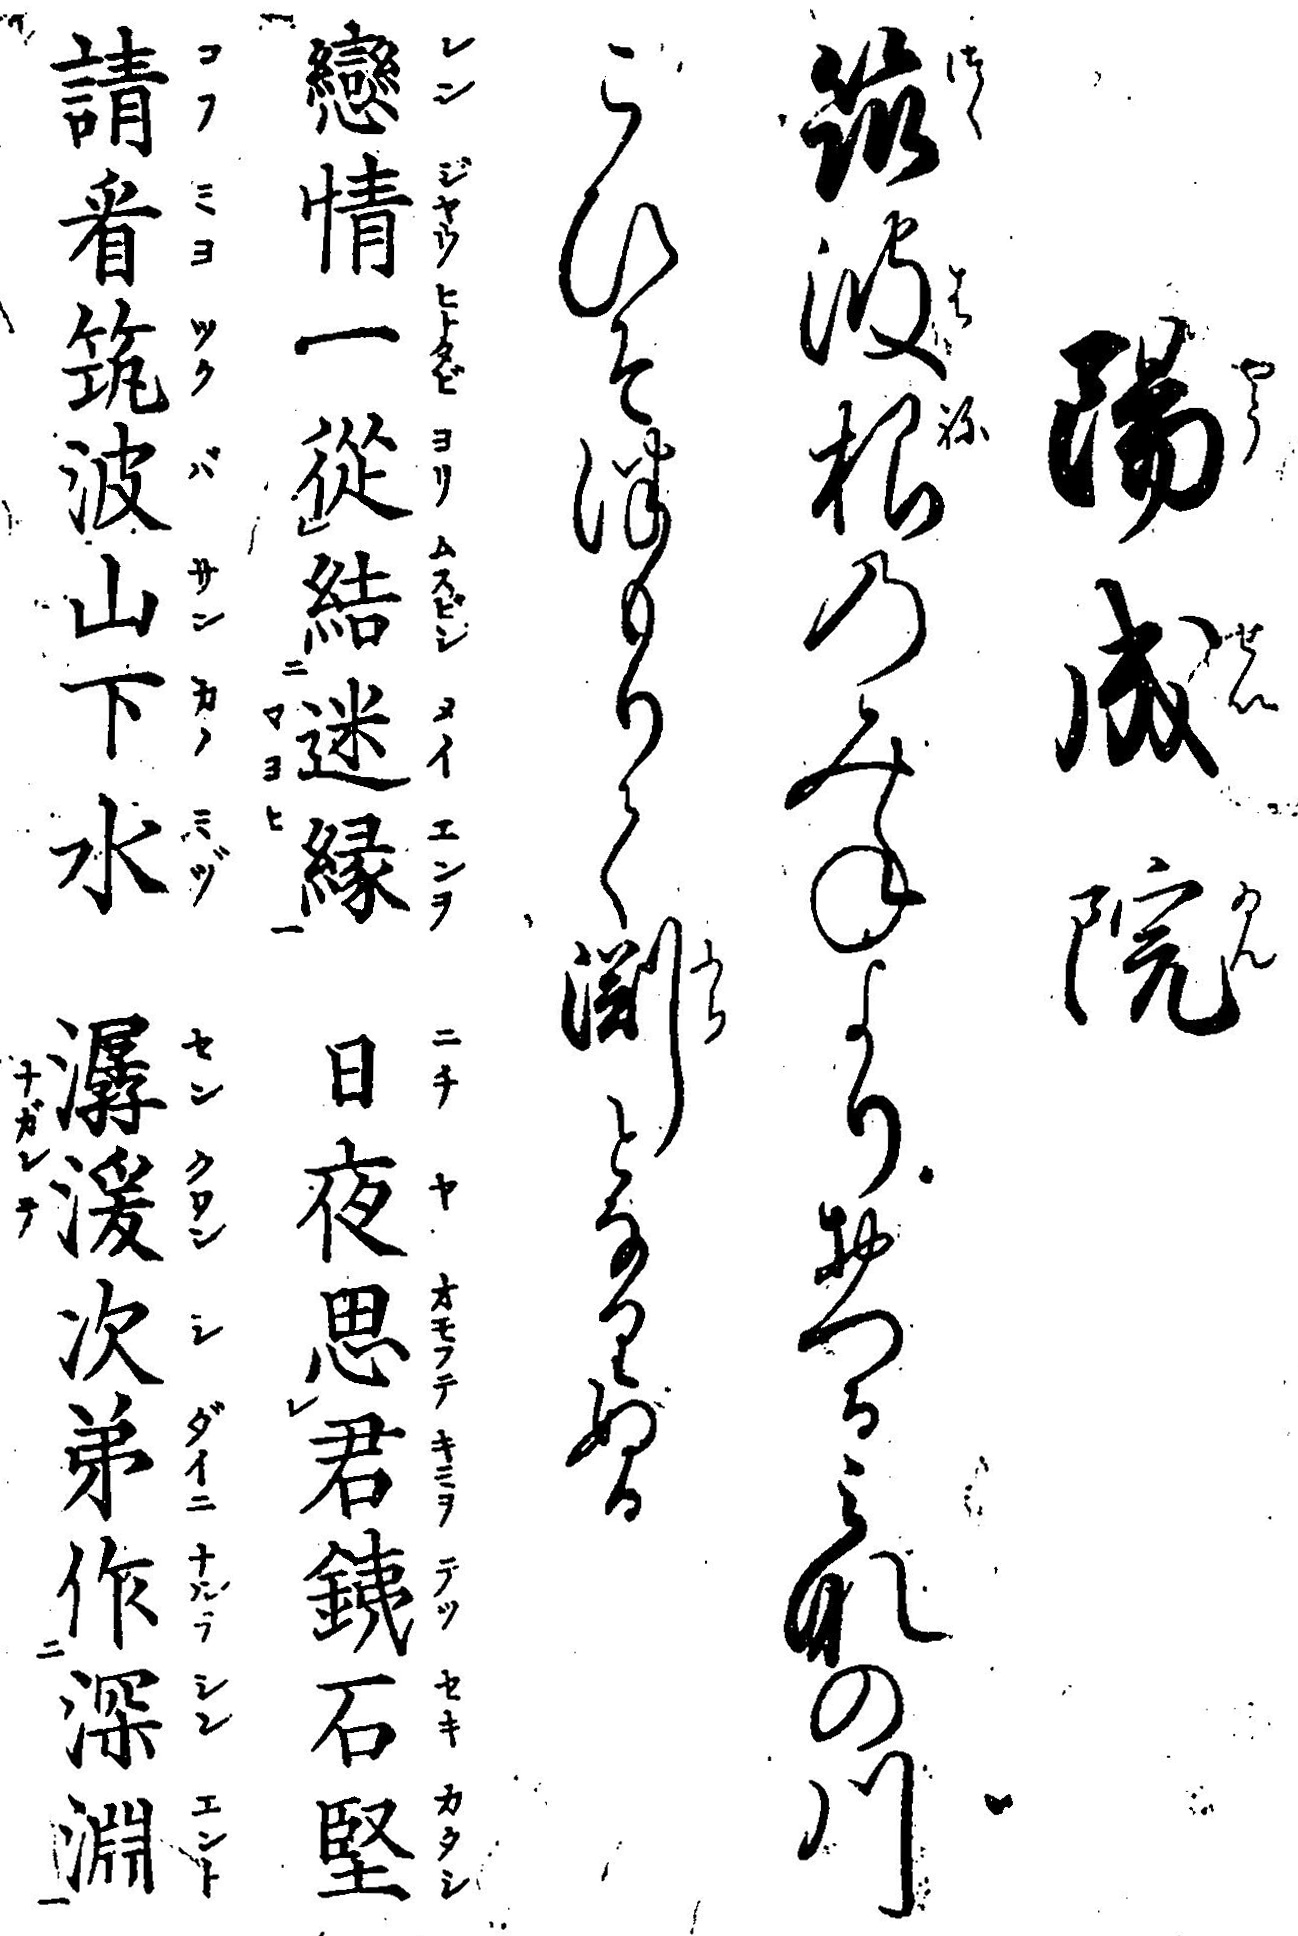 陽成院
筑波根のみねよりおつるみなの川
こひそつもりて淵となりぬる
戀情一從結迷縁 日夜思君銕石堅
請看筑波山下水 潺湲次弟作深淵